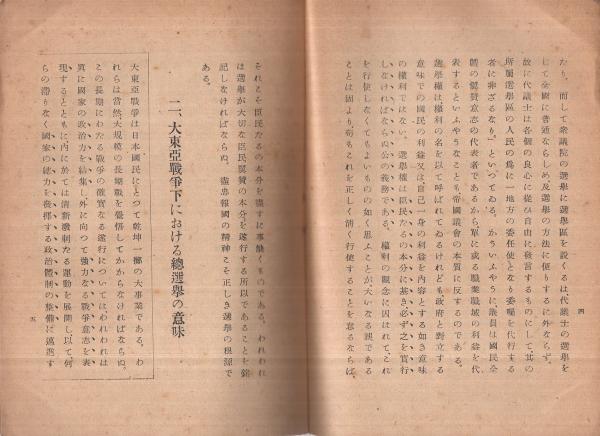 四
たり、而して衆議院の選擧に選擧區を設くるは代議士の選擧を
して全國に普通ならしめ及選擧の方法に便りするに外ならず、
故に代議士は各個の良心に從ひ自由に發言するものにして其の
所屬選擧區の人民の爲に一地方の委任使となり委囑を代行する
者に非ざるなり」といつてゐる。かういふやうに議員は國民全
體の贊意志の代表者であるから單に或る職業職域の利益を代
表するといふやうなことも、帝國議會の本質に反するのである。
選擧權は、權利の名を以て呼ばれてゐるけれども政府と對立する
意味での國民の利益又は自己一身の利益を內容とする如き意味
の權利ではない。選擧權は臣民たるの本分に基き必ず之を實行
しなければならぬ公の義務である。權利の觀念に囚はれて、これ
を行使しなくてもよいものの如く思ふことが大いなる誤である
ことは固より、苟もこれを正しく淸く行使することを怠るならば、
それこそ臣民たるの本分を盡すに事缺くものである。われわれ
は選擧が大切な臣民翼贊の本分を遂行する所以であることを銘
記しなければならぬ。盡忠報國の精神こそ正しき選擧の根源で
ある。
二、大東亞戰爭下における總選擧の意味
大東亞戰爭は日本國民にとつて乾坤一擲の大事業である。わ
れらは當然、大規模の長期戰を覺悟してかからなければならぬ。
この長期にわたる戰爭の徹實なる遂行についてはわれわれは
眞に國家の政治力を結集し、外に向つて强力なる戰爭意志を表
現するとともに內に於ては淸新潑剌たる運動を展開し、以て何
らの滯りなく國家の總力を發揮する政治體制の整備に邁進す
五